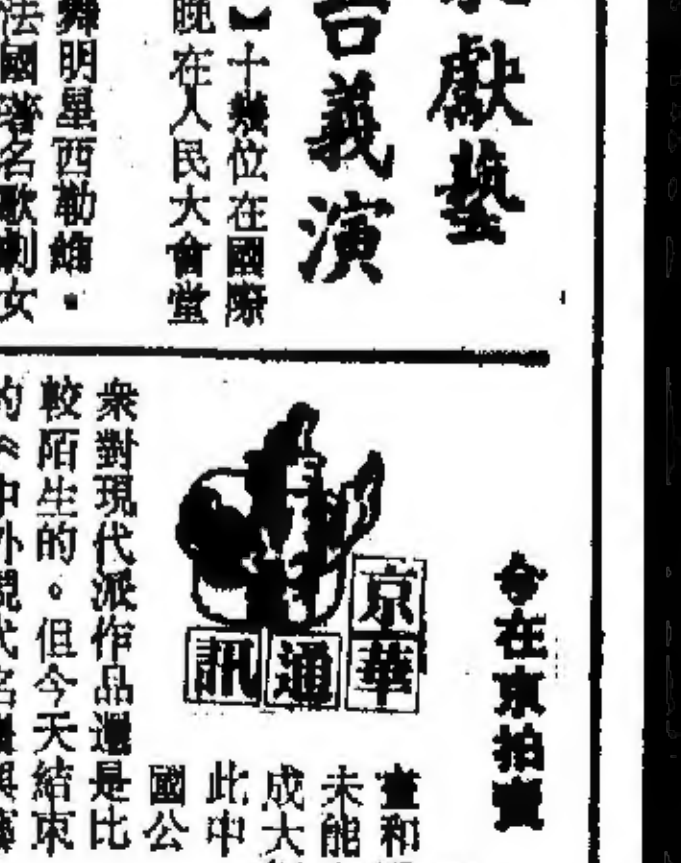 獻藝
台義演
】十幾位在國際
晚在人民大會堂
舞明星西勒維·
法國著名歌劇女
今在京拍賣
京華
通訊
畫和
未能
成大
此中
國公
衆對現代派作品還是比
較陌生的。但今天結束
的《中外現代名與藝